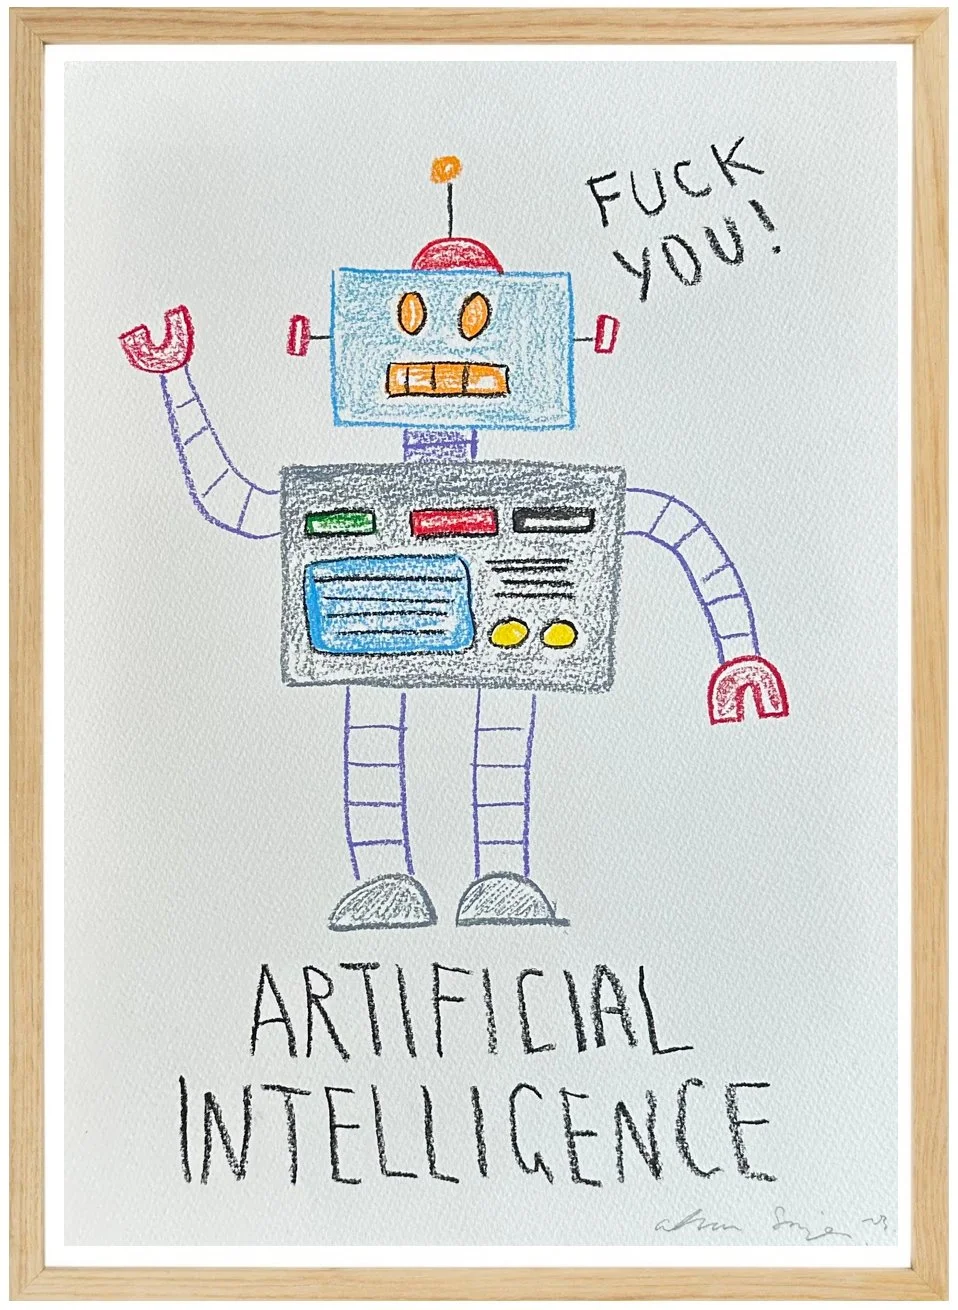 FUCK
YOU!
ARTIFICIAL
INTELLIGENCE